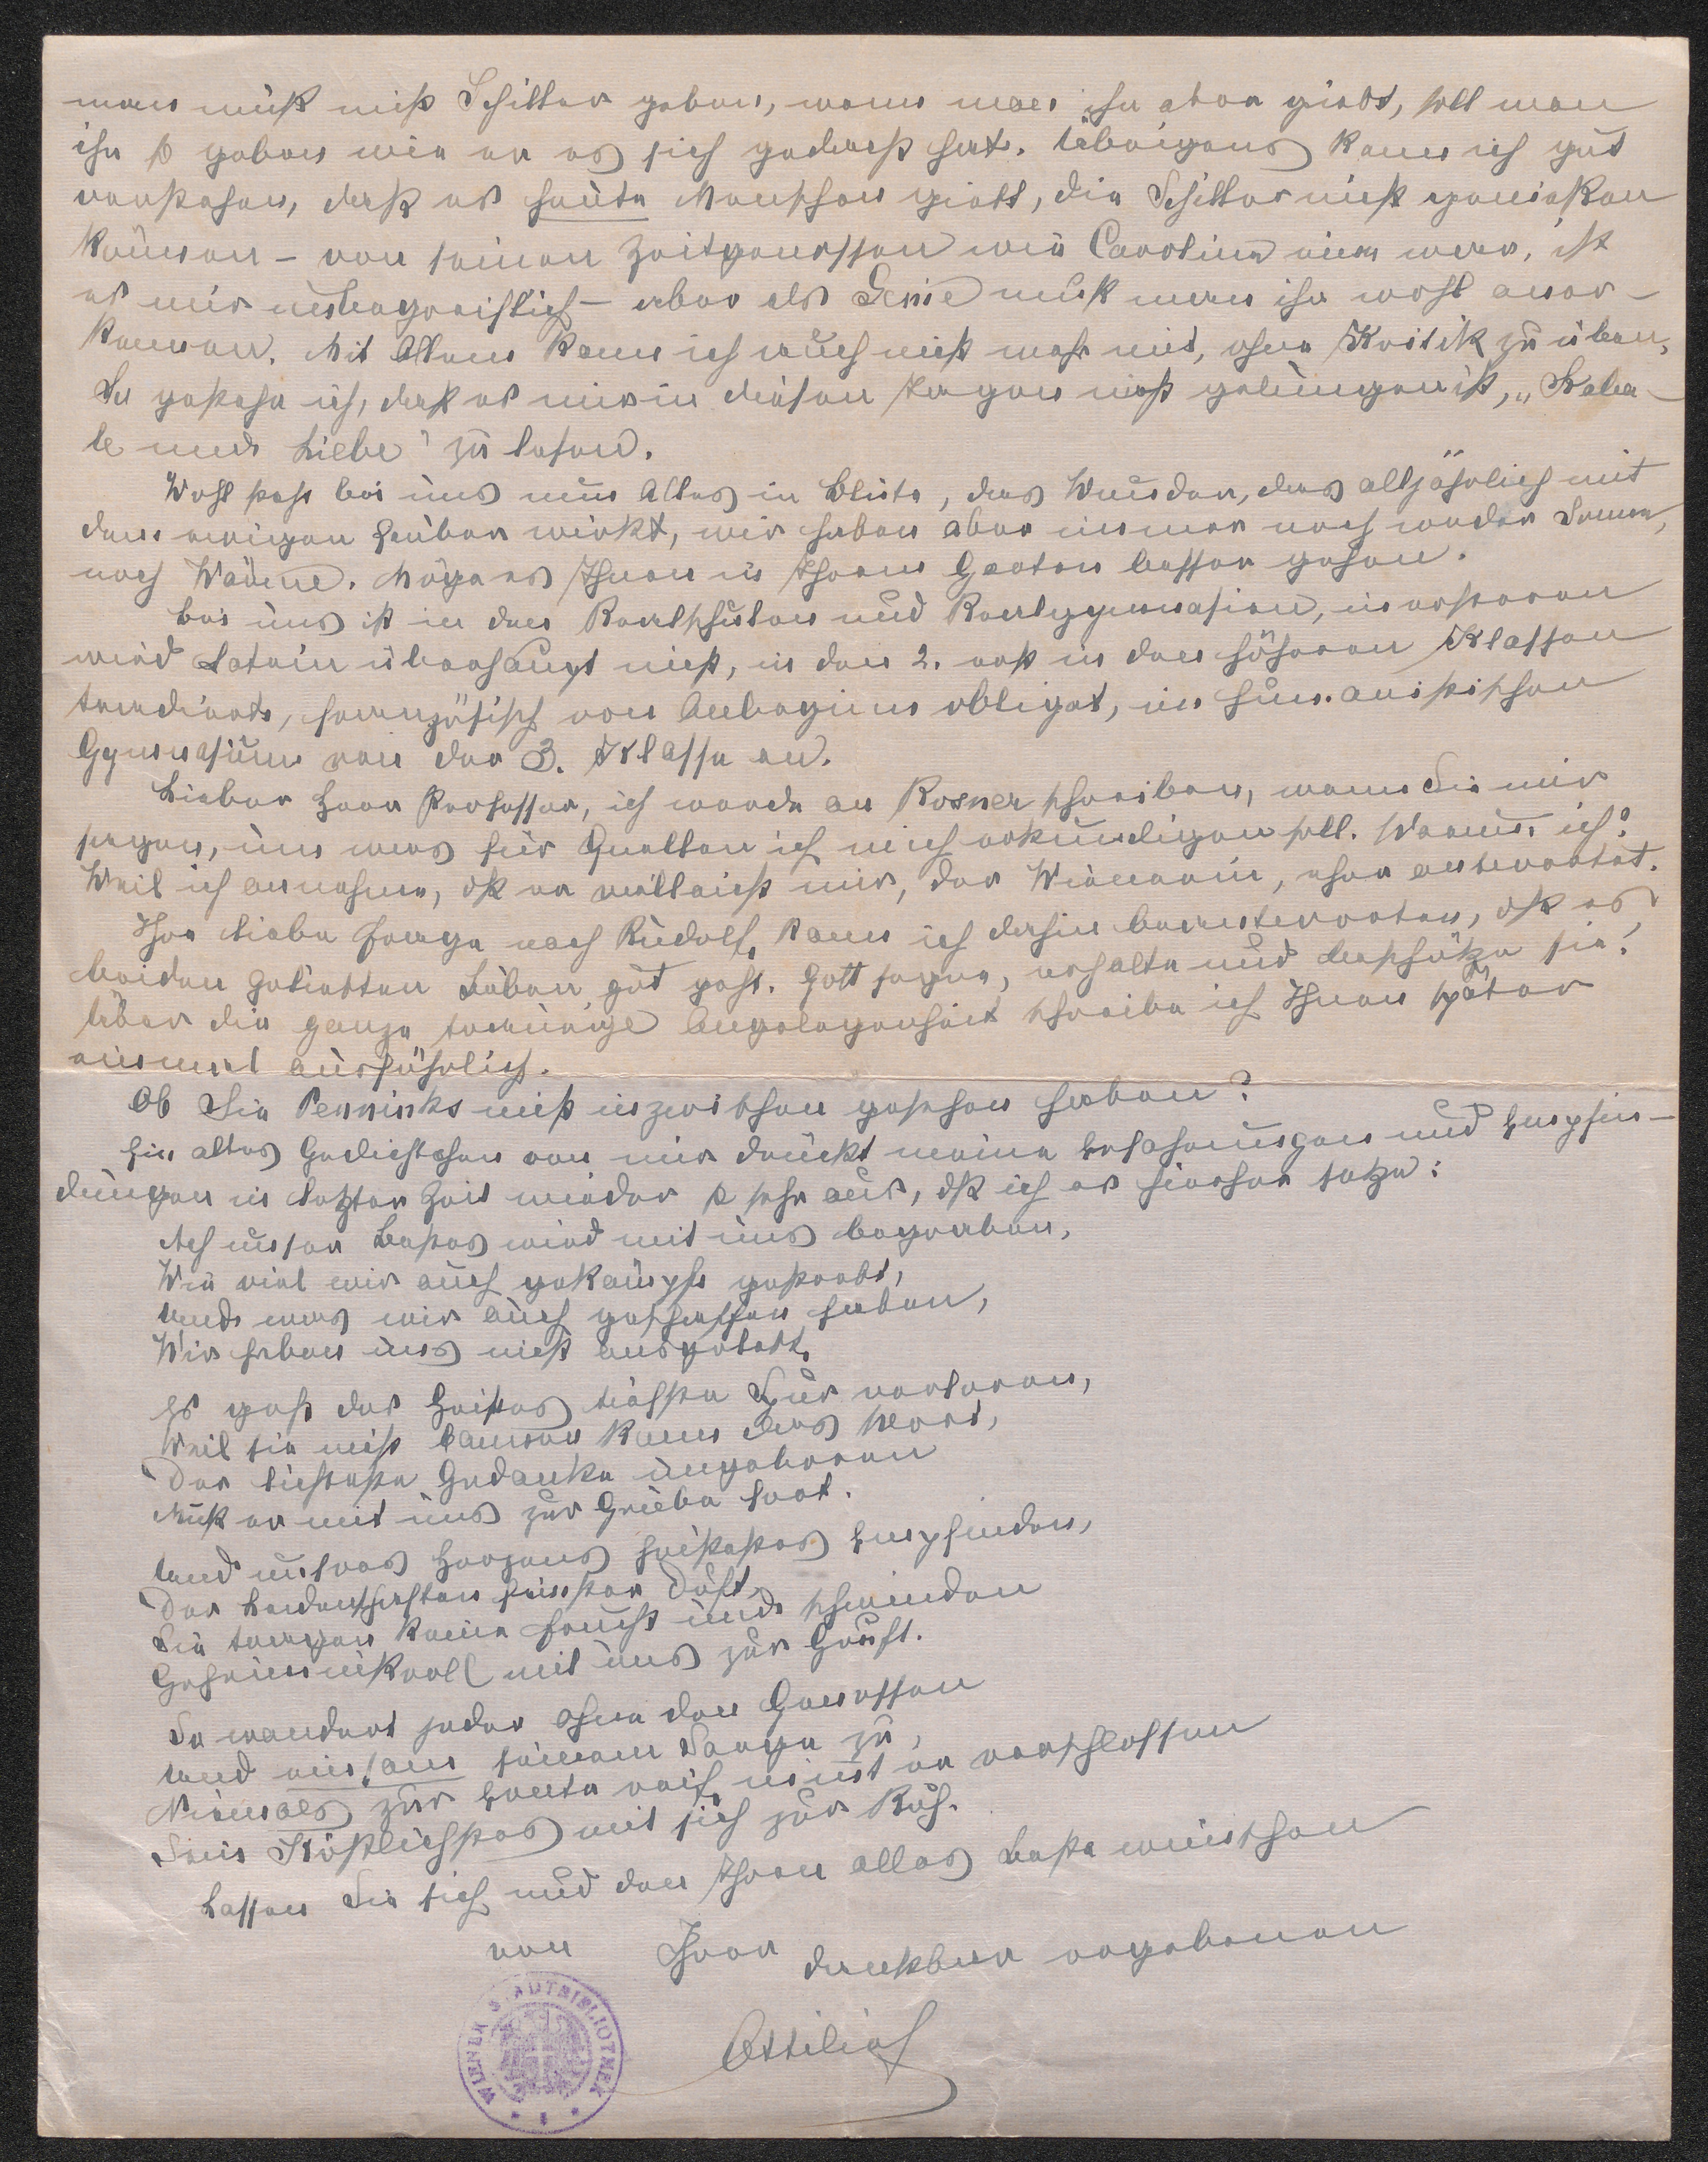 man muß nicht Schiller geben, wenn man ihn aber giebt, soll man
ihn so geben wie er es sich gedacht hat. Übrigens kann ich gut
verstehen, daß es heute Menschen giebt, die Schiller nicht genießen
können – von seinen Zeitgenossen wie Caroline eine war, ist
es mir unbegreiflich – aber als Genie muß man ihn wohl aner-
kennen. Mit Allem kann ich auch nicht mehr mit, ohne Kritik zu üben,
So gestehe ich, daß es mir in diesen Tagen nicht gelungen ist, „Kaba-
le und Liebe" zu lesen.
Wohl steht bei uns nun Alles in Blüte, das Wunder, das alljährlich mit
dem ewigen Zauber wirkt, wir haben aber immer noch weder Sonne,
noch Wärme. Möge es Ihnen in Ihrem Garten besser gehen.
Bei uns ist in den Realschulen und Realgymnasien, in ersteren
wird Latein überhaupt nicht, in den 2. erst in den höheren Klassen
tradiert, französisch von Anbeginn obligat, im humanistischen
Gymnasium von der 3. Klasse an.
Lieber Herr Professor, ich werde an Rosner schreiben, wenn Sie mir
sagen, um was für Quellen ich mich erkundigen soll. Warum ich?
Weil ich annehme, dß er vielleicht mir, der Wienerin, eher antwortet.
Ihre liebe Frage nach Rudolf, kann ich dahin beantworten, dß es
beiden geliebten Buben gut geht. Gott segne, erhalte und beschütze sie!
Über die ganze traurige Angelegenheit schreibe ich Ihnen später
einmal ausführlich.
Ob Sie Penninks nicht inzwischen gesehen haben?
Ein altes Gedichtchen von mir drückt meine Erfahrungen und Empfin-
dungen in letzter Zeit wieder so sehr aus, dß ich es hierher setze:
Ach unser Bestes wird mit uns begraben,
Wie viel wir auch gekämpft gestrebt,
Und was wir auch geschaffen haben,
Wir haben uns nicht ausgelebt.
Es geht des Geistes tiefste Spur verloren,
Weil sie nicht bannen kann das Wort,
Der lichteste Gedanke ungeboren
Muß er mit uns zur Grube fort.
Und unsres Herzens heißestes Empfinden,
Der Leidenschaften feinster Duft,
Sie tragen keine Frucht und schwinden
Geheimnißvoll mit uns zur Gruft.
So wandert jeder ohne den Genossen
Und einsam seinem Sarge zu,
Niemals zur Ernte reif, nimt er verschlossen
Sein Köstlichstes mit sich zur Ruh.
Lassen Sie sich und den Ihren alles Beste wünschen
von Ihrer dankbar ergebenen
Ottilie
WIENER STADTBIBLIOTHEK